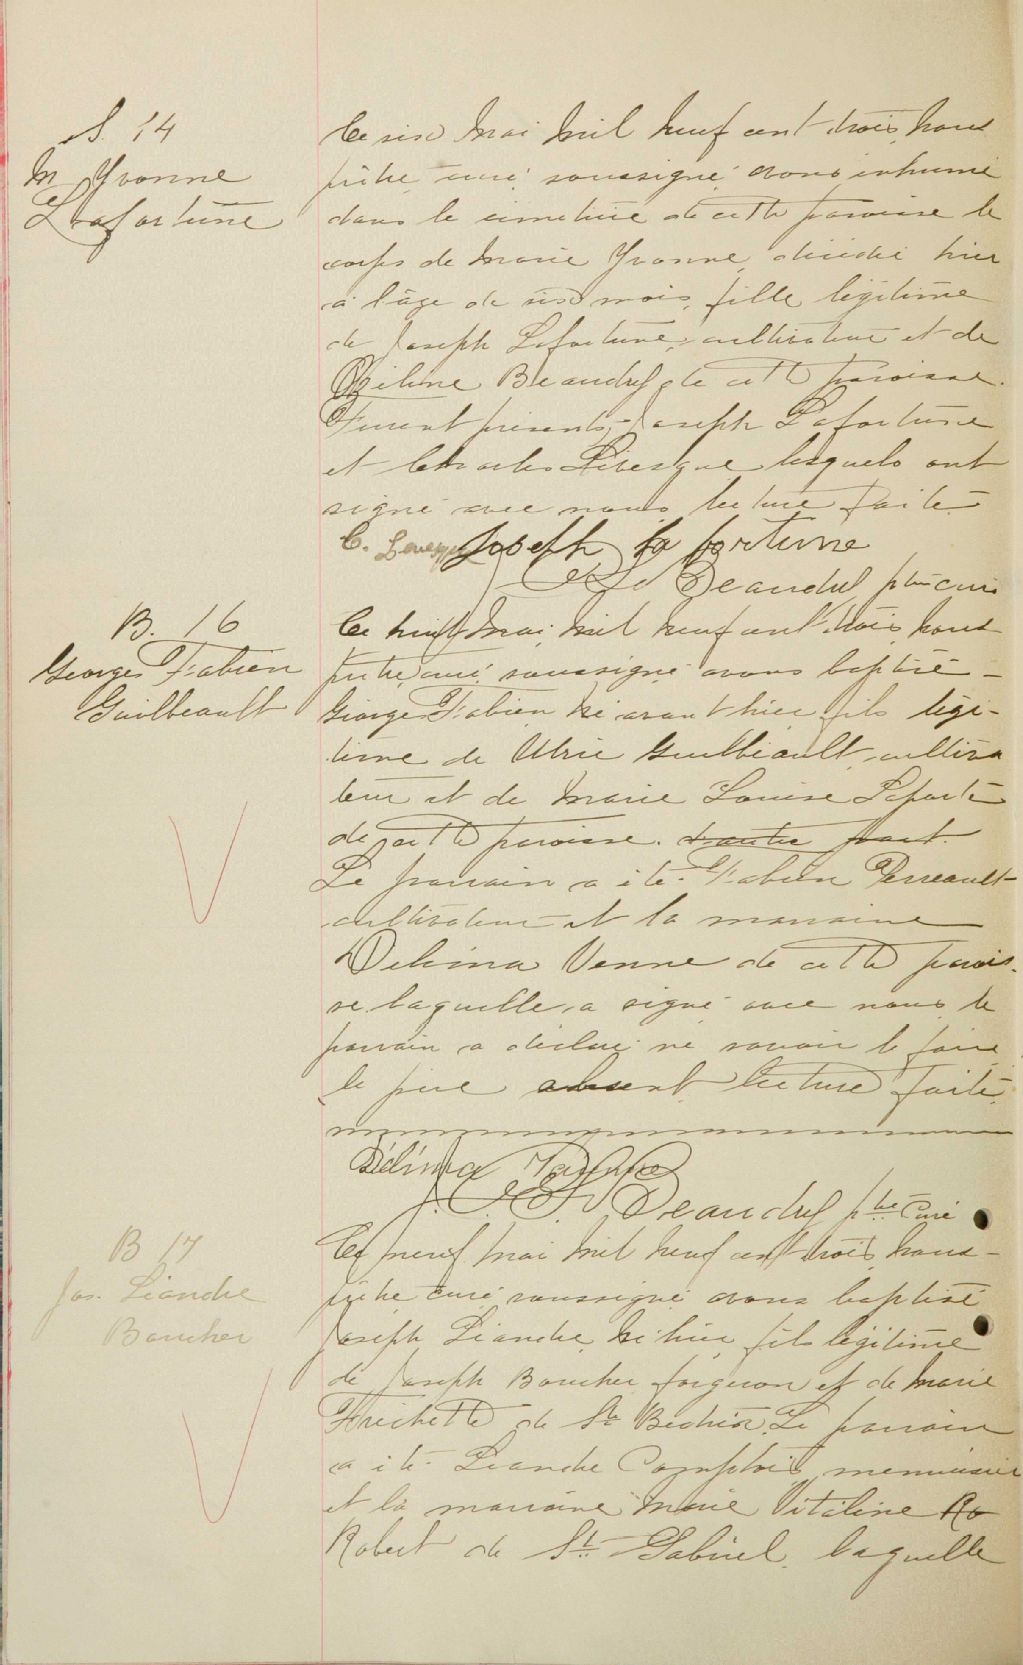 S. 14
M Yvonne
Lafortune
Ce six Mai Mil neuf cent trois, nous
prêtre curé soussigné avons inhumé
dans le cimetière de cette paroisse le
corps de Marie Yvonne, décédée hier
à l'âge de six mois, fille légitime
de Joseph Lafortune, cultivateur et de
Ozilime Beaudry de cette paroisse.
Furent présents, Joseph Lafortune
et Charles Lévesque lesquels ont
signé avec nous lecture faite
C. Levesque Joseph la fortune
Beaudry ptre curé
B. 16
Georges Fabien
Guilbeault
Ce huit Mai Mil neuf cent trois nous
prêtre curé soussigné avons baptisé
Georges Fabien né avant hier fils légi-
time de Ulric Guilbeault, cultiva
teur et de Marie Louise Laporte
de cette paroisse. d'autre part
Le parrain a été Fabien Perreault
cultivateur et la marraine
Délima Venne de cette parois-
se laquelle a signé avec nous le
parrain a déclaré ne savoir le faire
le père absent lecture faite
Délima Venne
Beaudry ptre Curé
B 17
Jos. Léandre
Boucher
Ce neuf Mai Mil neuf cent trois nous
prêtre curé soussigné avons baptisé
Joseph Léandre né hier, fils légitime
de Joseph Boucher forgeron et de Marie
Frichette de St. Le parrain
a été Léandre Comptois, menuisier
et la marraine Marie Vitaline Ro
Robert de St. Gabriel, laquelle